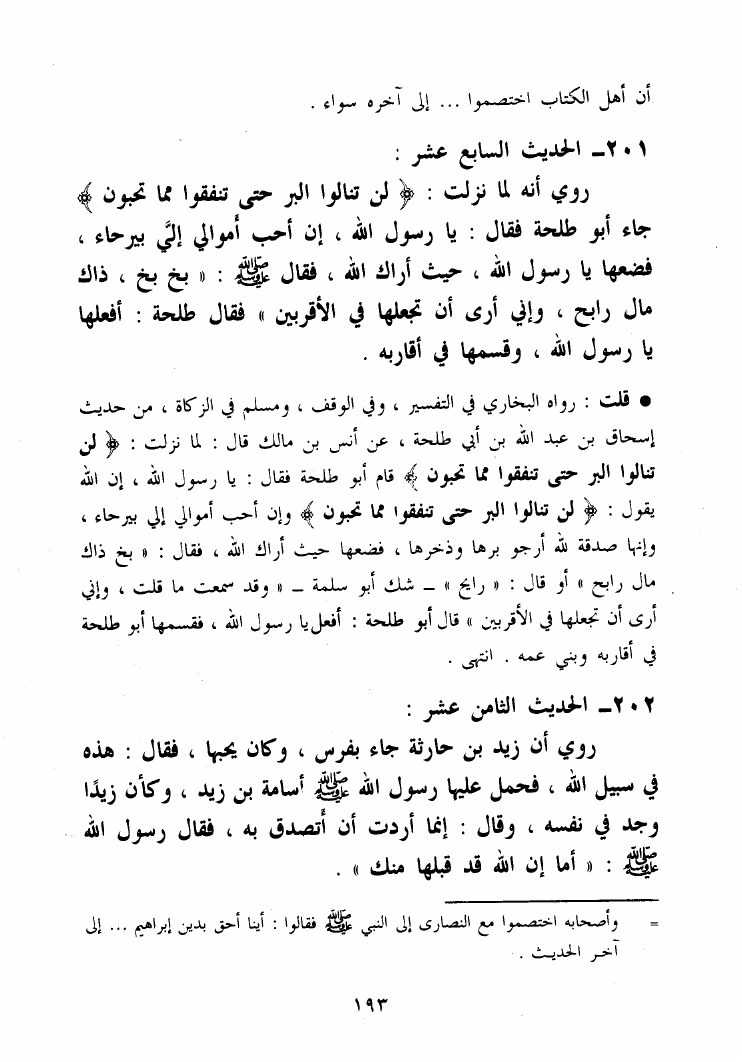 أن أهل الكتاب اختصموا ... إلى آخره سواء .
٢٠١ـ الحديث السابع عشر :
روي أنه لما نزلت : ﴿ لن تنالوا البر حتى تنفقوا مما تحبون ﴾
جاء أبو طلحة فقال : يا رسول الله ، إن أحب أموالي إليَّ بيرحاء ،
فضعها يا رسول الله ، حيث أراك الله ، فقال ﷺ : « بخ بخ ، ذاك
مال رابح ، وإني أرى أن تجعلها في الأقربين » فقال طلحة : أفعلها
يا رسول الله ، وقسمها في أقاربه .
● قلت : رواه البخاري في التفسير ، وفي الوقف ، ومسلم في الزكاة ، من حديث
إسحاق بن عبد الله بن أبي طلحة ، عن أنس بن مالك قال : لما نزلت : ﴿ لن
تنالوا البر حتى تنفقوا مما تحبون ﴾ قام أبو طلحة فقال : يا رسول الله ، إن الله
يقول : ﴿ لن تنالوا البر حتى تنفقوا مما تحبون ﴾ وإن أحب أموالي إلي بيرحاء ،
وإنها صدقة لله أرجو برها وذخرها ، فضعها حيث أراك الله ، فقال : « بخ ذاك
مال رابح » أو قال : « رايح » ــ شك أبو سلمة ــ « وقد سمعت ما قلت ، وإني
أرى أن تجعلها في الأقربين » قال أبو طلحة : أفعل يا رسول الله ، فقسمها أبو طلحة
في أقاربه وبني عمه . انتهى .
٢٠٢ـ الحديث الثامن عشر :
روي أن زيد بن حارثة جاء بفرس ، وكان يحبها ، فقال : هذه
في سبيل الله ، فحمل عليها رسول الله ﷺ أسامة بن زيد ، وكأن زيدًا
وجد في نفسه ، وقال : إنما أردت أن أتصدق به ، فقال رسول الله
ﷺ : « أما إن الله قد قبلها منك » .
= وأصحابه اختصموا مع النصارى إلى النبي ﷺ فقالوا : أينا أحق بدين إبراهيم ... إلى
آخر الحديث .
١٩٣